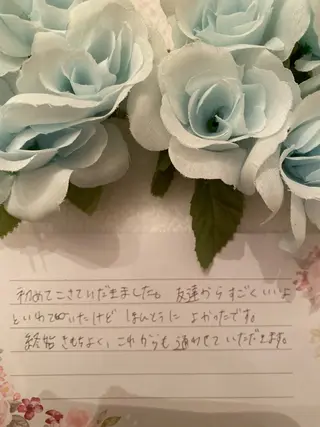 初めてこさせていただきました。友達からすごくいいよ
といわれていたけど ほんとうに よかったです。
終始きもちよく、これからも通わせていただきます。